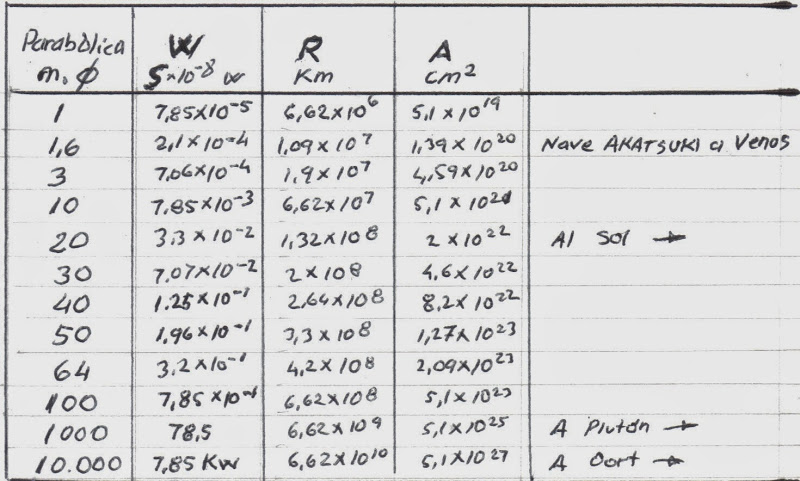 Parabòlica W R A
m. ϕ 5×10⁻⁸ w Km cm²
1 7,85×10⁻⁵ 6,62×10⁶ 5,1×10¹⁹
1,6 2,1×10⁻⁴ 1,09×10⁷ 1,39×10²⁰ Nave AKATSUKI a Venos
3 7,06×10⁻⁴ 1,9×10⁷ 4,59×10²⁰
10 7,85×10⁻³ 6,62×10⁷ 5,1×10²¹
20 3,3×10⁻² 1,32×10⁸ 2×10²² Al Sol →
30 7,07×10⁻² 2×10⁸ 4,6×10²²
40 1.25×10⁻¹ 2,64×10⁸ 8,2×10²²
50 1,96×10⁻¹ 3,3×10⁸ 1,27×10²³
64 3.2×10⁻¹ 4,2×10⁸ 2,09×10²³
100 7,85×10⁻¹ 6,62×10⁸ 5,1×10²³
1000 78,5 6,62×10⁹ 5,1×10²⁵ A Plutón →
10.000 7,85 Kw 6,62×10¹⁰ 5,1×10²⁷ A Oort →